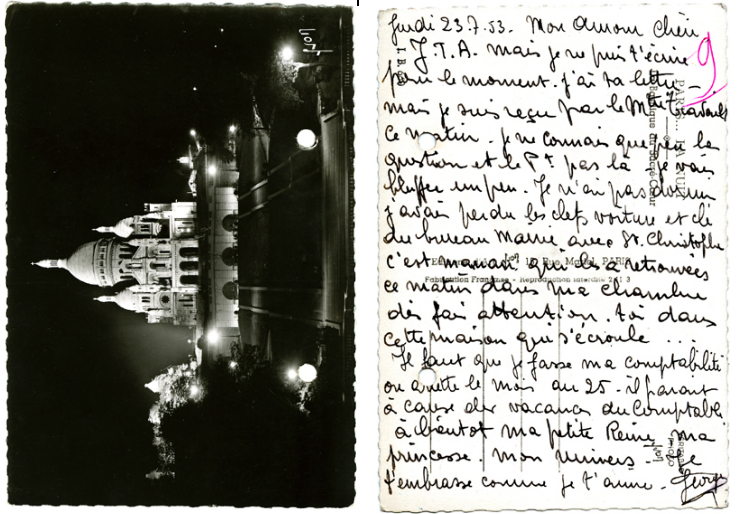 Jeudi 23.7.53. Mon Amour Chéri
J.T.A. mais je ne puis t'écrire
pour le moment. j'ai ta lettre -
mais je suis reçu par le
ce matin. je ne connais que peu la
question et le Pt pas là je vais
bluffer un peu. Je n'ai pas
j'avais perdu les clefs voiture et clé
du bureau Mairie avec St. Christophe
c'est maman qui les a retrouvées
ce matin dans ma chambre
dès fois attention. toi dans
cette maison qui s'écroule ...
Il faut que je fasse ma comptabilité
on arrête le mois au 25 - il parait
à cause des vacances du Comptable
à bientôt ma petite Reine, ma
princesse. mon univers Je
t'embrasse comme je t'aime -
9
PARIS...
Basilique du Sacré-Cœur
Rue, PARIS
Fabrication Française - Reproduction interdite
yvon
yvon
yvon